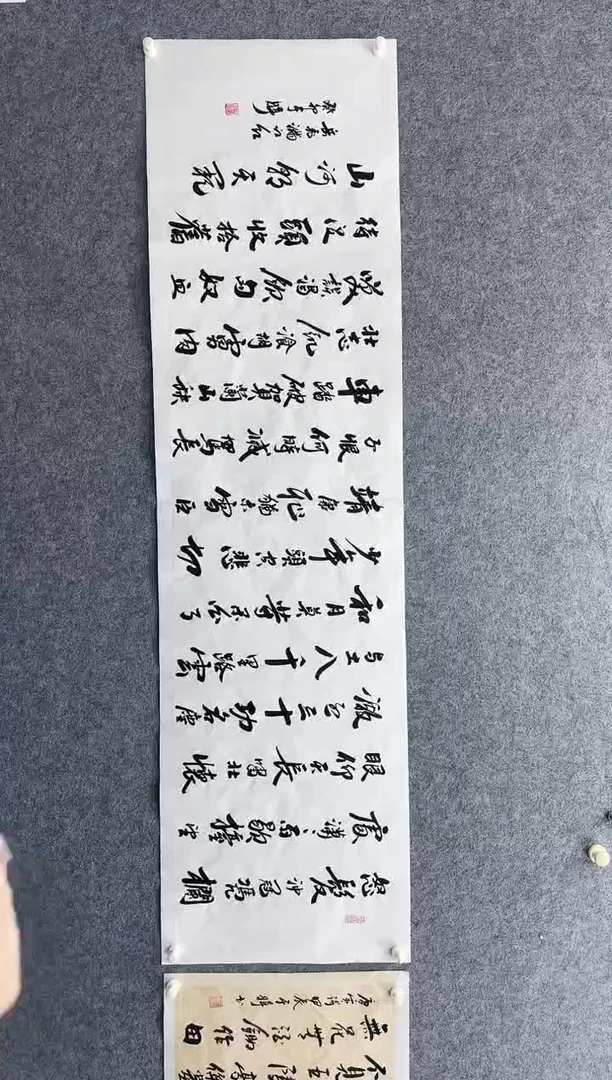 怒髮沖冠憑欄
處瀟雨歇擡望
眼仰天長嘯壯懷
激烈三十功名塵
与土八千里路雲
和月莫等閑白了
少年頭空悲切
靖康恥猶未雪臣
子恨何時滅駕長
車踏破賀蘭山缺
壯志飢餐胡虜肉
笑談渴飲匈奴血
待從頭收拾舊
山河朝天闕
岳飛滿江紅
癸卯年
不見五陵豪傑
無花無酒鋤作田